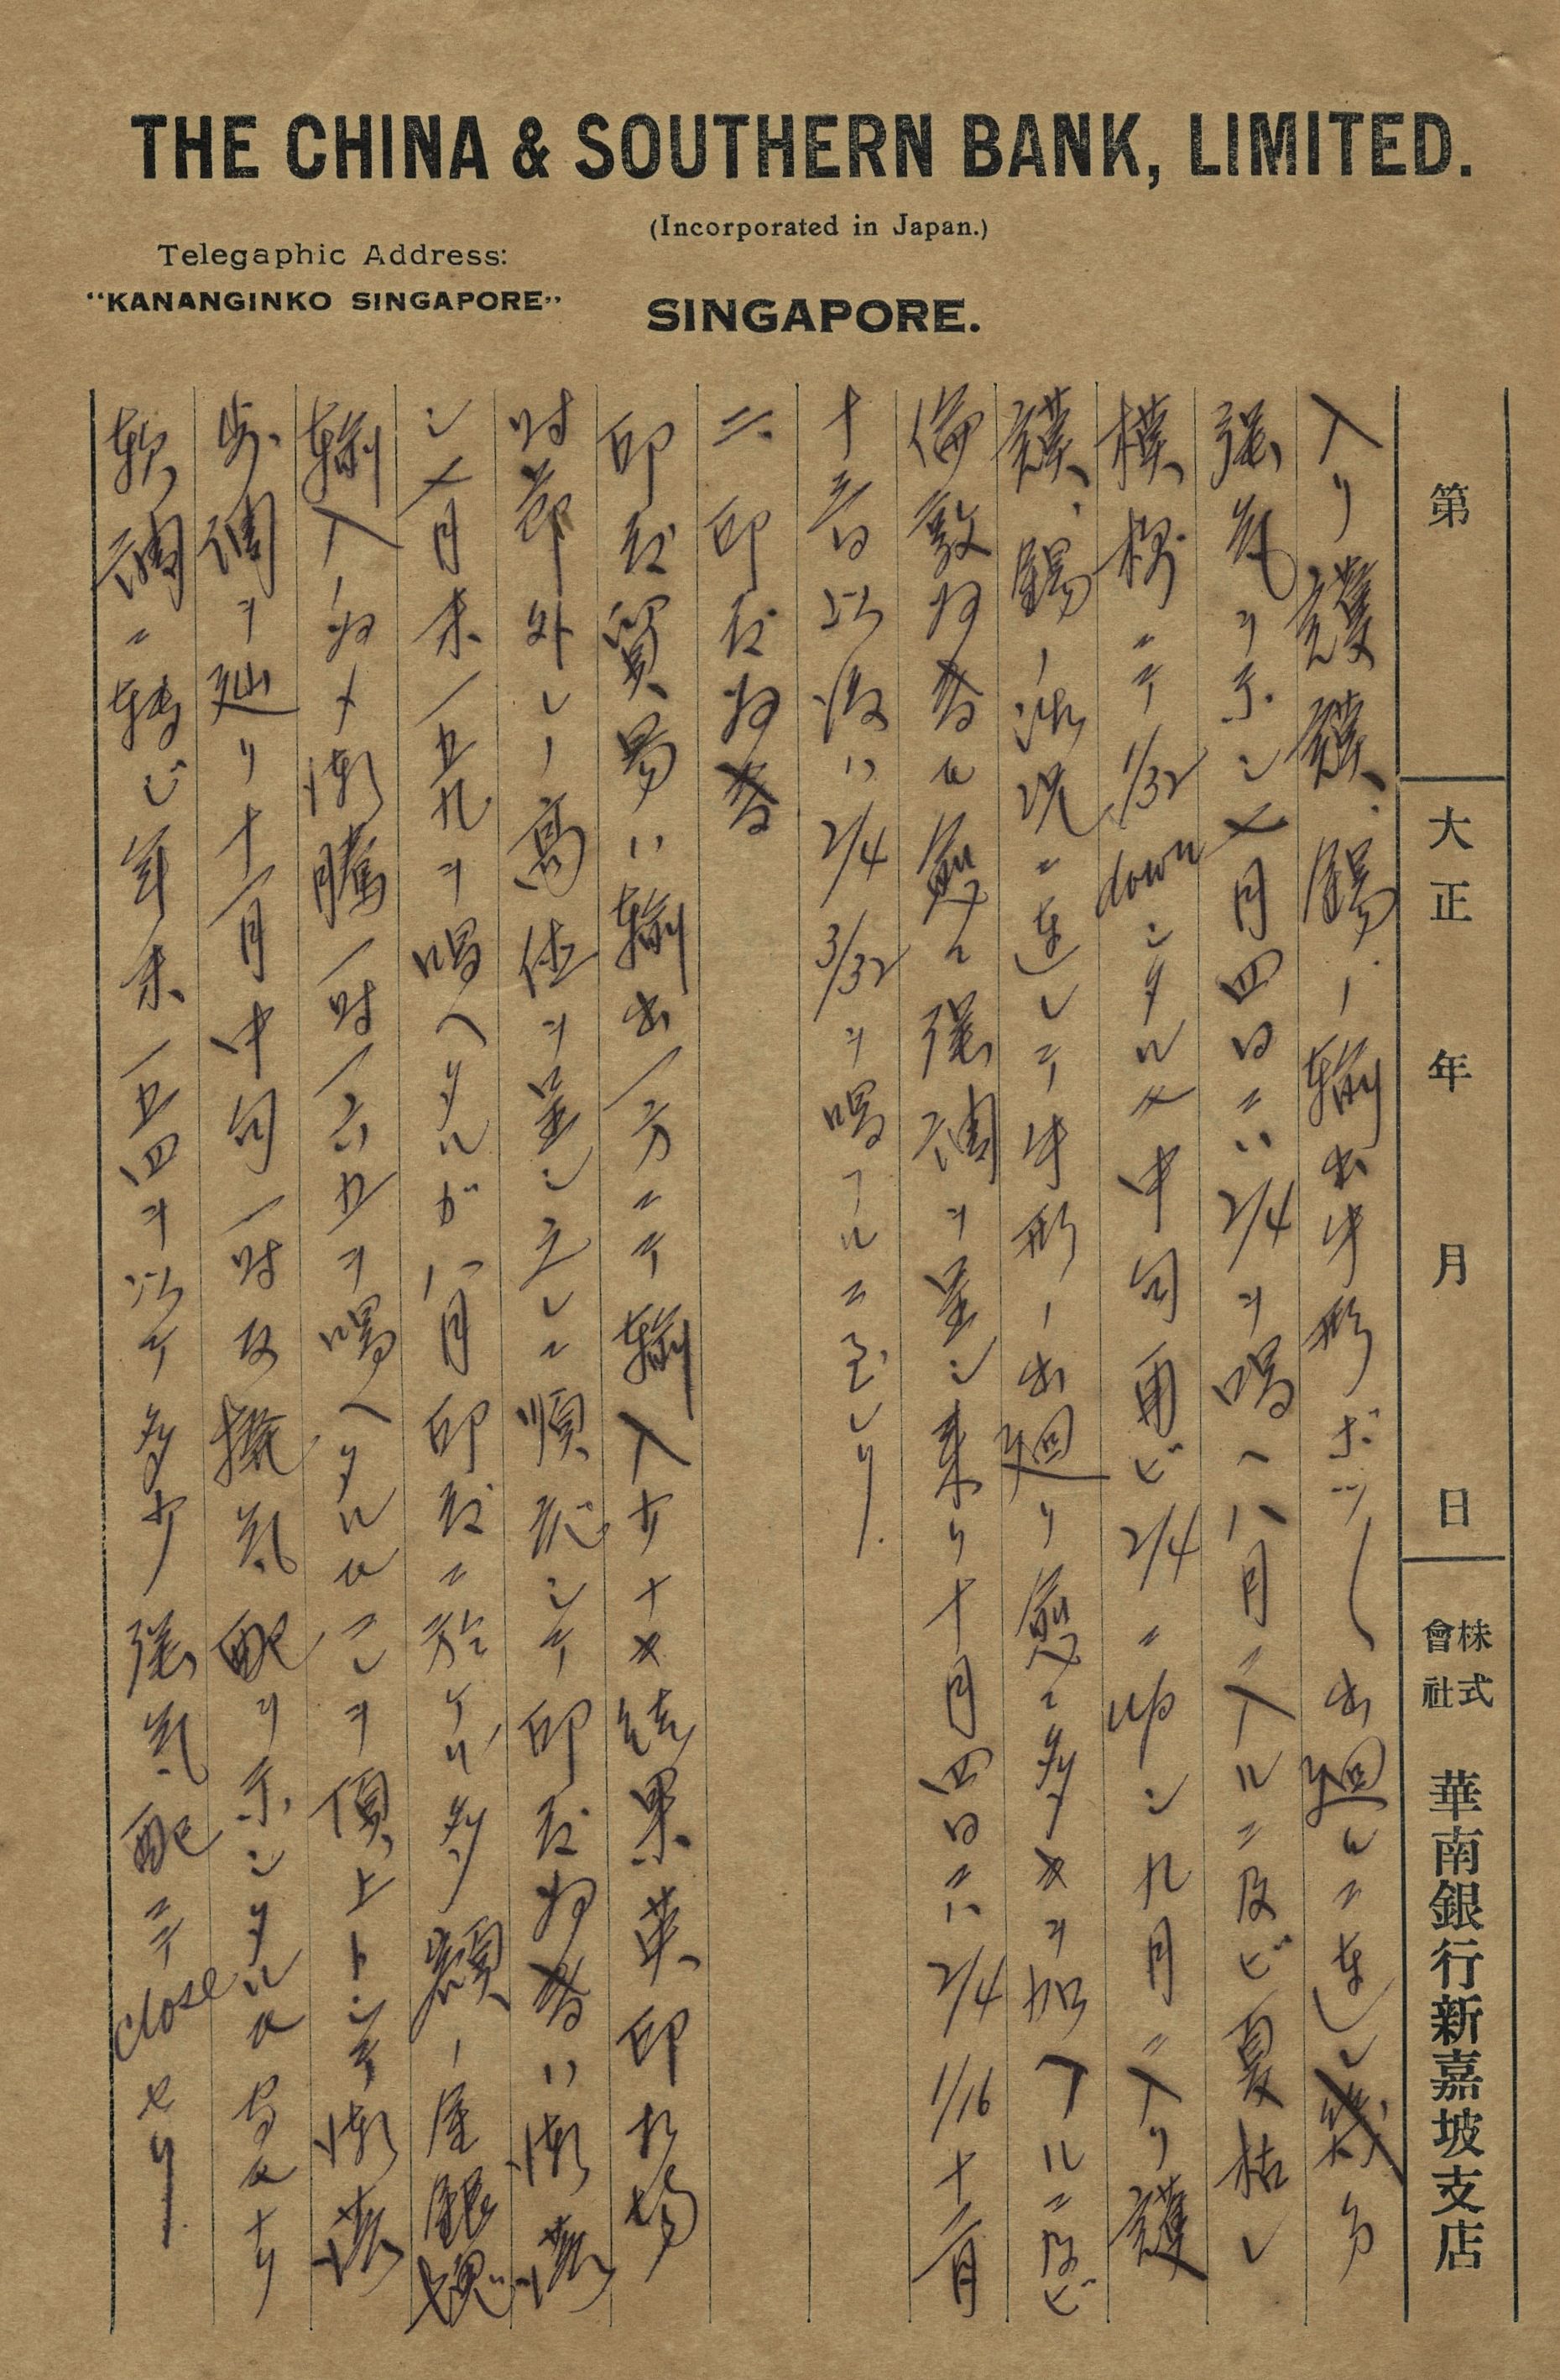 THE CHINA & SOUTHERN BANK, LIMITED.
(Incorporated in Japan.)
Telegaphic Address:
"KANANGINKO SINGAPORE"
SINGAPORE.
第 大正 年 月 日 株式會社 華南銀行新嘉坡支店
入リ護謨、錫ノ輸出手形ボツ〱出廻ルニ連レ幾分
強気ヲ示シ七月四日ニハ 2/4 ヲ唱ヘ八月ニ入ルニ及ビ夏枯レ
模樣ニテ 1/32 down シタルモ中旬再ビ 2/4 ニ up シ九月ニ入リ護
謨、錫ノ活況ニ連レテ手形ノ出廻リ愈々多キヲ加フルニ及ビ
倫敦為替モ愈々強調ヲ呈シ来リ十月四日ニハ 2/4 1/16 十二月
十三日以後ハ 2/4 3/32 ヲ唱フルニ至レリ.
二. 印度為替
印度貿易ハ輸出一方ニテ輸入少ナキ結果英印相場
時節外レノ高値ヲ呈シ之レニ順應シテ印度為替ハ漸騰
シ七月末一五九ヲ唱ヘタルガ八月印度ニ於ケル多額ノ産銀塊
輸入ノ為メ漸騰一時一六五ヲ唱ヘタルモ之ヲ頂上トシテ漸落
歩調ヲ辿リ十一月中旬一時反撥気配ヲ示シタルモ
軟調ニ轉ジ年末一五四ヲ以テ多少強気配ニテ close セリ